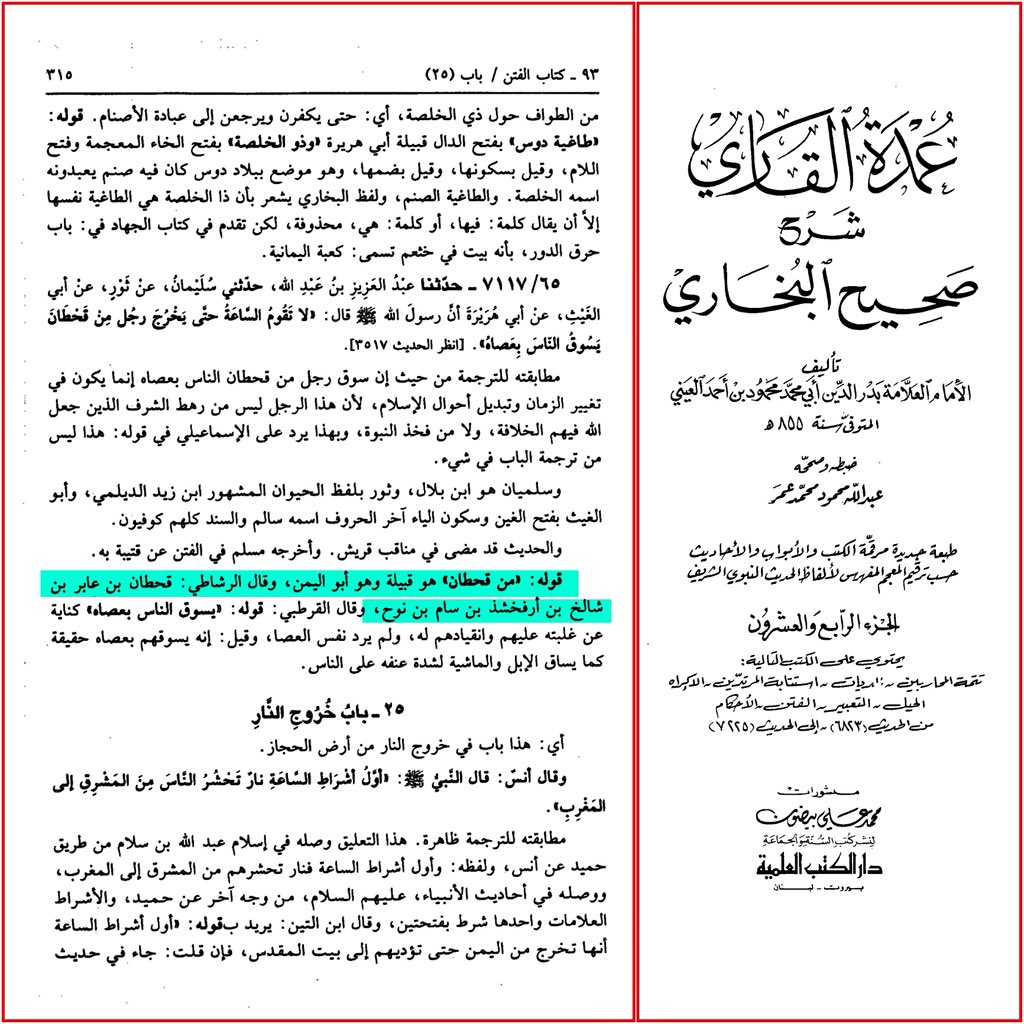 ٩٣ ـ كتاب الفتن / باب (٢٥)
٣١٥
من الطواف حول ذي الخلصة، أي: حتى يكفرن ويرجعن إلى عبادة الأصنام. قوله:
«طاغية دوس» بفتح الدال قبيلة أبي هريرة «وذو الخلصة» بفتح الخاء المعجمة وفتح
اللام، وقيل بسكونها، وقيل بضمها، وهو موضع ببلاد دوس كان فيه صنم يعبدونه
اسمه الخلصة. والطاغية الصنم، ولفظ البخاري يشعر بأن ذا الخلصة هي الطاغية نفسها
إلاَّ أن يقال كلمة: فيها، أو كلمة: هي، محذوفة، لكن تقدم في كتاب الجهاد في: باب
حرق الدور، بأنه بيت في خثعم تسمى: كعبة اليمانية.
٧١١٧/٦٥ ـ حدّثنا عبْدُ العَزِيزِ بنُ عَبْدِ الله، حدّثني سُلَيْمانُ، عنْ ثَوْرٍ، عنْ أبي
الغَيْثِ، عنْ أبي هُرَيْرَةَ أنَّ رسولَ الله ﷺ قال: «لا تَقُومُ السَّاعَةُ حتَّى يَخْرُجَ رجُل مِنْ قَحْطَانَ
يَسُوقُ النَّاسَ بِعَصاهُ». [انظر الحديث ٣٥١٧].
مطابقته للترجمة من حيث إن سوق رجل من قحطان الناس بعصاه إنما يكون في
تغيير الزمان وتبديل أحوال الإسلام، لأن هذا الرجل ليس من رهط الشرف الذين جعل
الله فيهم الخلافة، ولا من فخذ النبوة، وبهذا يرد على الإسماعيلي في قوله: هذا ليس
من ترجمة الباب في شيء.
وسلميان هو ابن بلال، وثور بلفظ الحيوان المشهور ابن زيد الديلمي، وأبو
الغيث بفتح الغين وسكون الياء آخر الحروف اسمه سالم والسند كلهم كوفيون.
والحديث قد مضى في مناقب قريش. وأخرجه مسلم في الفتن عن قتيبة به.
قوله: «من قحطان» هو قبيلة وهو أبو اليمن، وقال الرشاطي: قحطان بن عابر بن
شالخ بن أرفخشذ بن سام بن نوح، وقال القرطبي: قوله: «يسوق الناس بعصاه» كناية
عن غلبته عليهم وانقيادهم له، ولم يرد نفس العصا، وقيل: إنه يسوقهم بعصاه حقيقة
كما يساق الإبل والماشية لشدة عنفه على الناس.
٢٥ ـ بابُ خُرُوجِ النَّارِ
أي: هذا باب في خروج النار من أرض الحجاز.
وقال أنسٌ: قال النَّبيُّ ﷺ: «أوَّلُ أشْراطِ السَّاعَةِ نارٌ تَحْشُرُ النَّاسَ مِنَ المَشْرِقِ إلى
المَغْرِبِ».
مطابقته للترجمة ظاهرة. هذا التعليق وصله في إسلام عبد الله بن سلام من طريق
حميد عن أنس، ولفظه: وأول أشراط الساعة فنار تحشرهم من المشرق إلى المغرب،
ووصله في أحاديث الأنبياء، عليهم السلام، من وجه آخر عن حميد، والأشراط
العلامات واحدها شرط بفتحتين، وقال ابن التين: يريد بقوله: «أول أشراط الساعة
أنها تخرج من اليمن حتى تؤديهم إلى بيت المقدس، فإن قلت: جاء في حديث
عُمْدَةُ ٱلقَارِي
شَرْح
صَحِيح البُخَارِي
تأليف
الأمام العلامة بدر الدين أبي محمد محمود بن أحمد العيني
المتوفى سنة ٨٥٥ هـ
ضبطه وصححه
عبد الله محمود محمد عمر
طبعة جديدة مرقمة الكتب والأبواب والأحاديث
حسب ترقيم المعجم المفهرس لألفاظ الحديث النبوي الشريف
الجزء الرابع والعشرون
يحتوي على الكتب التالية:
تتمة المحاربين - الديات - استتابة المرتدين - الإكراه
الحيل - التعبير - الفتن - الأحكام
من الحديث (٦٨٢٣) - إلى الحديث (٧٢٢٥)
منشورات
محمد علي بيضون
لنشر كتب السنة والجماعة
دار الكتب العلمية
بيروت - لبنان